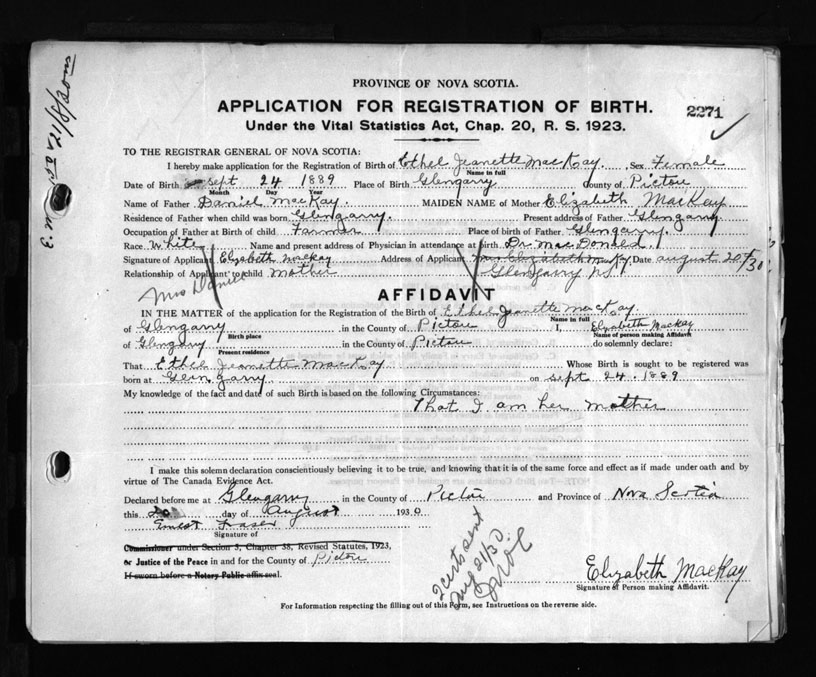 PROVINCE OF NOVA SCOTIA.
APPLICATION FOR REGISTRATION OF BIRTH.
2271
Under the Vital Statistics Act, Chap. 20, R. S. 1923.
TO THE REGISTRAR GENERAL OF NOVA SCOTIA:
I hereby make application for the Registration of Birth of Ethel Jeanette MacKay. Sex Female
Name in full
Date of Birth Sept 24 1889 Place of Birth Glengarry County of Pictou
Month Day Year
Name of Father Daniel MacKay. MAIDEN NAME of Mother Elizabeth MacKay
Residence of Father when child was born Glengarry. Present address of Father Glengarry.
Occupation of Father at Birth of child Farmer Place of birth of Father Glengarry.
Race White Name and present address of Physician in attendance at birth Dr. MacDonald.
Signature of Applicant Elizabeth MacKay Address of Applicant Mrs Elizabeth McKay Date August 20/30
Relationship of Applicant to child Mother Glengarry N.S.
Mrs Daniel
AFFIDAVIT
IN THE MATTER of the application for the Registration of the Birth of Ethel Jeanette MacKay
Name in full
of Glengarry in the County of Pictou I, Elizabeth MacKay
Birth place Name of person making Affidavit
of Glengarry in the County of Pictou do solemnly declare:
Present residence
That Ethel Jeanette MacKay Whose Birth is sought to be registered was
born at Glengarry on Sept 24. 1889
My knowledge of the fact and date of such Birth is based on the following Circumstances:
That I am her mother
I make this solemn declaration conscientiously believing it to be true, and knowing that it is of the same force and effect as if made under oath and by
virtue of The Canada Evidence Act.
Declared before me at Glengarry in the County of Pictou and Province of Nova Scotia
this 20 day of August 1930
Ernest Fraser
Signature of
Commissioner under Section 3, Chapter 38, Revised Statutes, 1923,
or Justice of the Peace in and for the County of Pictou
If sworn before a Notary Public affix seal.
2 certs sent
Aug 21/30
Elizabeth MacKay
Signature of Person making Affidavit.
For Information respecting the filling out of this Form, see Instructions on the reverse side.